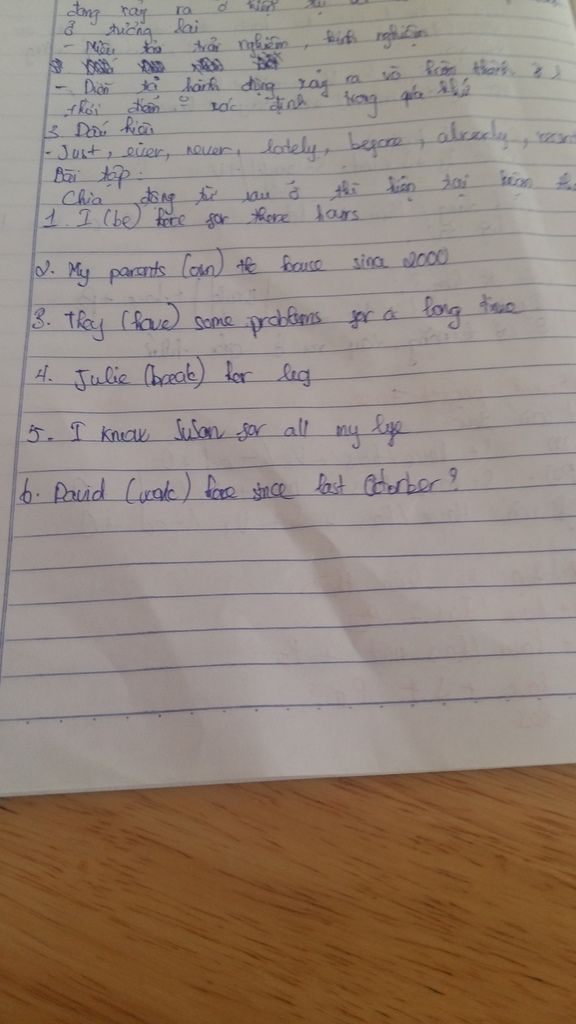 động xảy ra ở hiện
ở tương lai
- Miêu tả trải nghiệm, kinh nghiệm
- Diễn tả hành động xảy ra và hoàn thành
thời điểm xác định trong quá khứ
3 Dấu hiệu
- Just, ever, never, lately, before, already,
Bài tập:
Chia động từ sau ở thì hiện tại hoàn
1. I (be) here for three hours
2. My parents (own) the house since 2000
3. They (have) some problems for a long time
4. Julie (break) her leg
5. I know Susan for all my life
6. David (work) here since last Octorber?